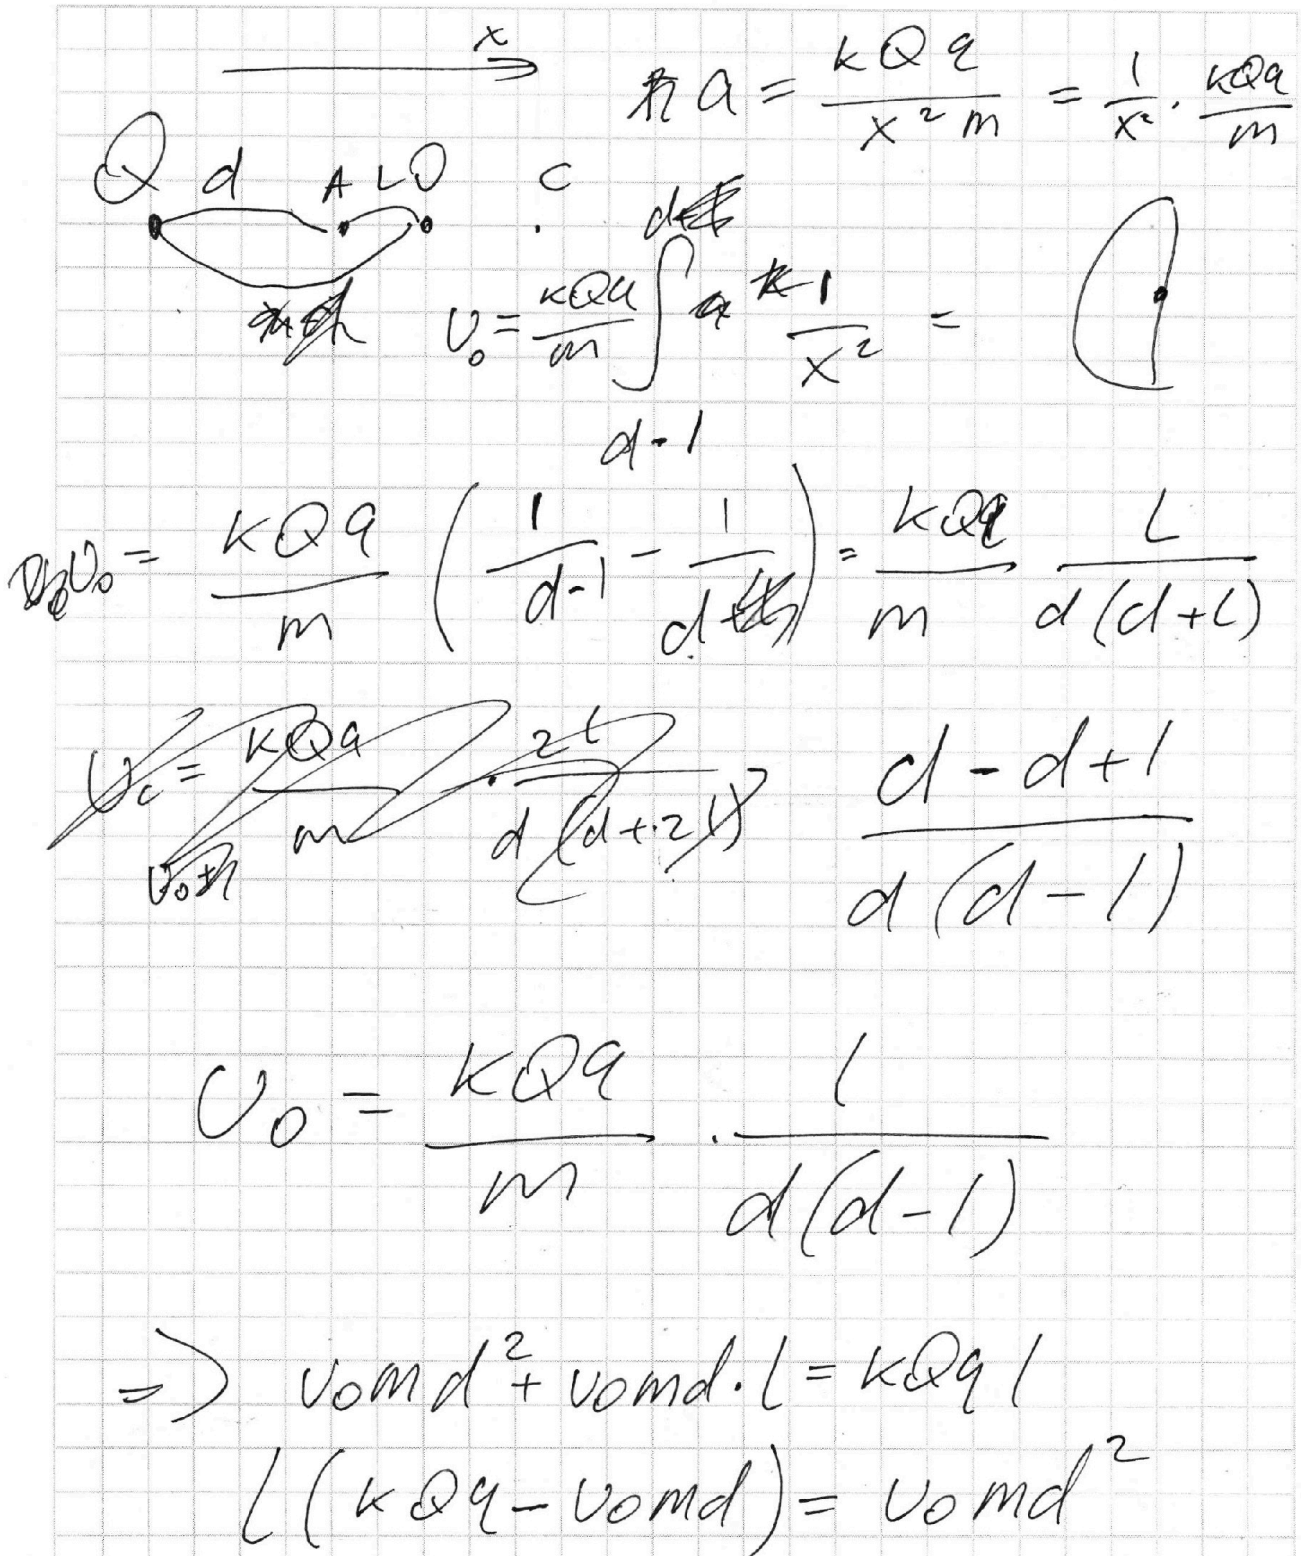 x
a = kQq / x² m = 1/x² · kQq/m
Q d A L O C
v₀ = kQq/m ∫ 1/x² =
d-l
v₀ = kQq/m ( 1/(d-l) - 1/d ) = kQq/m L/(d(d+L))
v_c = kQq/m · 2L/(d(d+2L))
(d-d+l)/(d(d-l))
v₀
v₀ = kQq/m · l/(d(d-l))
=> v₀md² + v₀md·l = kQql
l(kQq - v₀md) = v₀md²